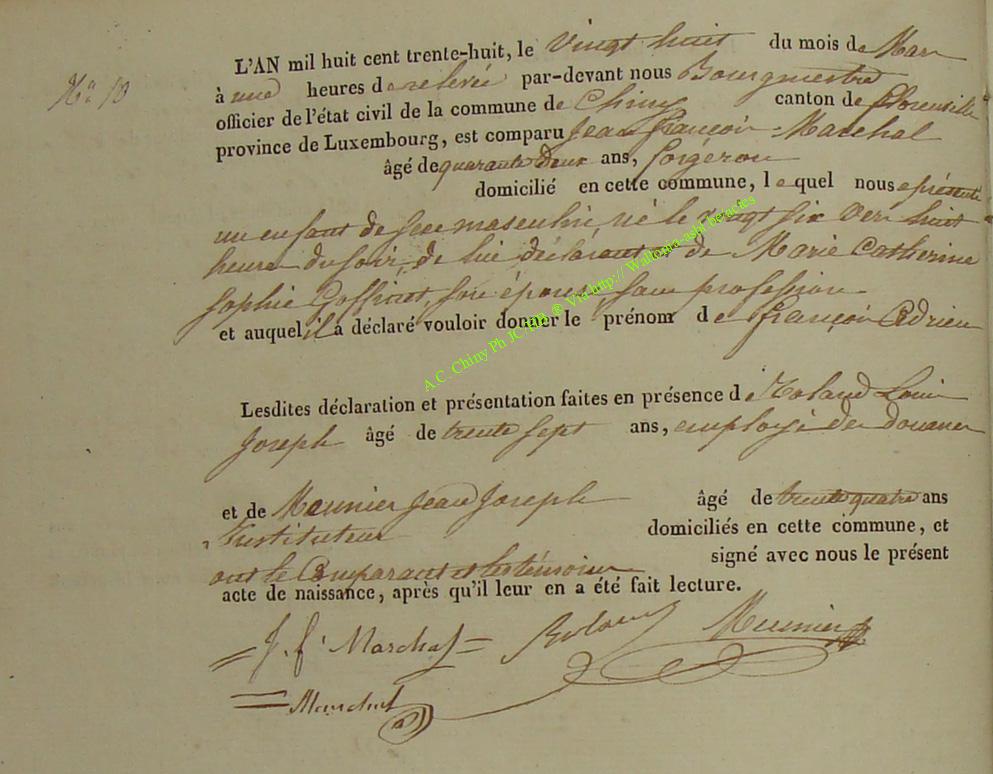 No 10
L'AN mil huit cent trente-huit, le vingt huit du mois de Mars
à une heures de relevée par-devant nous Bourgmestre
officier de l'état civil de la commune de Chiny canton de florenville
province de Luxembourg, est comparu Jean françois Marchal
âgé de quarante deux ans, forgeron
domicilié en cette commune, lequel nous a présenté
un enfant de sexe masculin, né le vingt six vers huit
heures du soir, de lui déclarant et de Marie Catherine
Sophie Goffinet, son épouse, sans profession
et auquel il a déclaré vouloir donner le prénom de françois Adrien
Lesdites déclaration et présentation faites en présence de Roland Louis
Joseph âgé de trente sept ans, employé des douanes
et de Meunier Jean Joseph âgé de trente quatre ans
Instituteur domiciliés en cette commune, et
ont le Comparant et les témoins signé avec nous le présent
acte de naissance, après qu'il leur en a été fait lecture.
J. f. Marchal Roland Meunier
Marchal
A.C. Chiny Ph JC HB ® Via http:// Wallonia-asbl be/actes